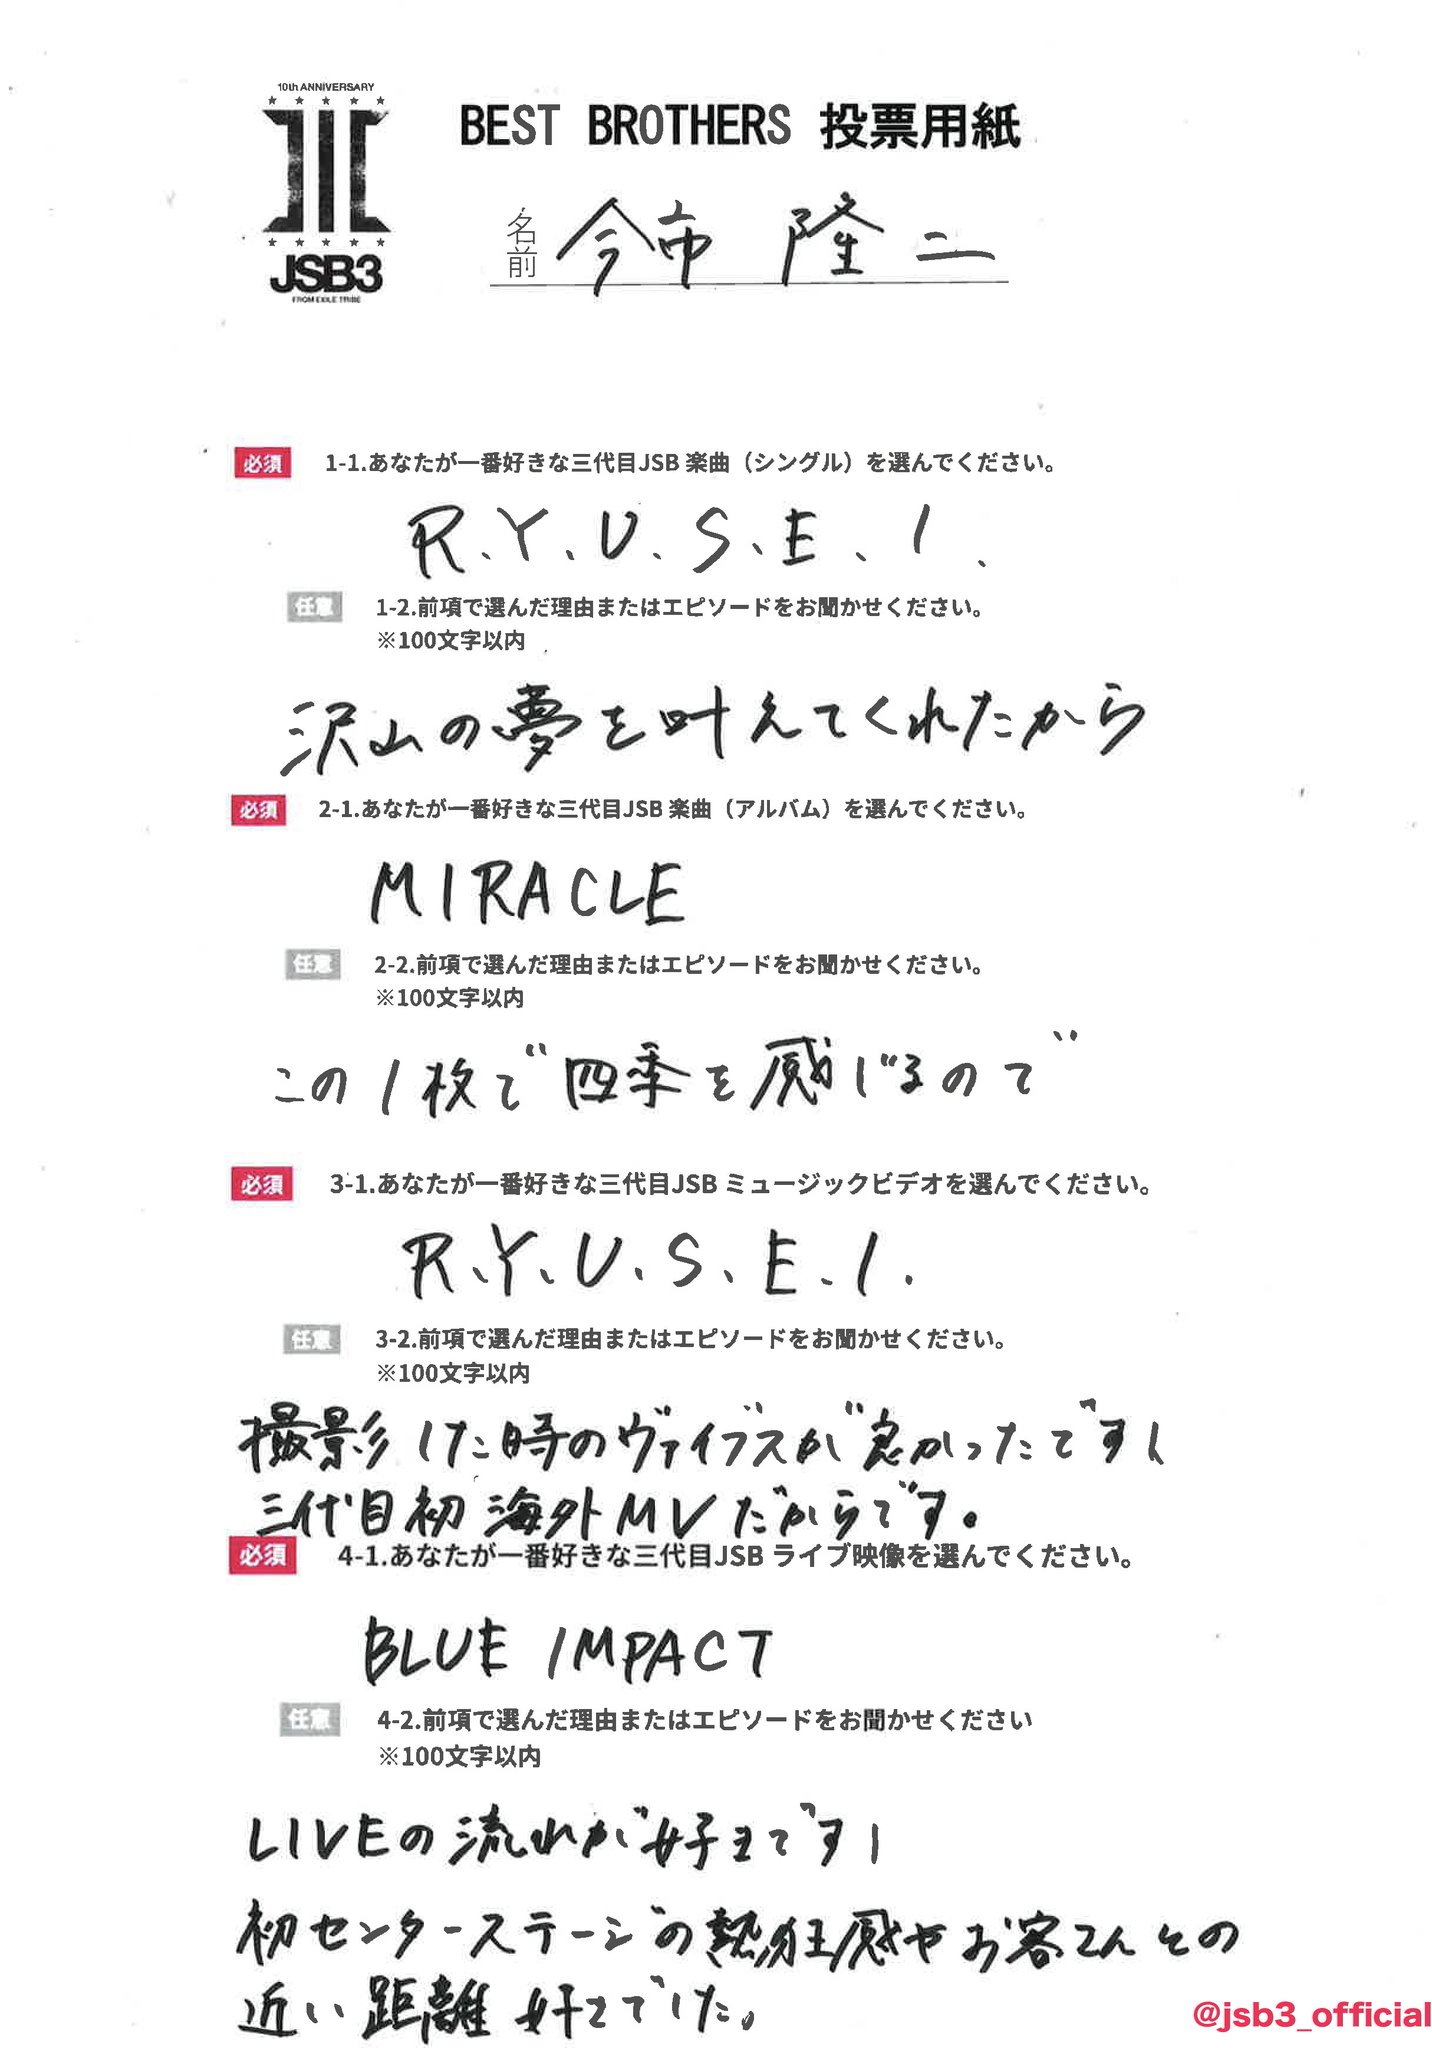 10th ANNIVERSARY
JSB3
FROM EXILE TRIBE
BEST BROTHERS 投票用紙
名前 今市 隆二
必須 1-1.あなたが一番好きな三代目JSB 楽曲（シングル）を選んでください。
R.Y.U.S.E.I.
任意 1-2.前項で選んだ理由またはエピソードをお聞かせください。
※100文字以内
沢山の夢を叶えてくれたから
必須 2-1.あなたが一番好きな三代目JSB 楽曲（アルバム）を選んでください。
MIRACLE
任意 2-2.前項で選んだ理由またはエピソードをお聞かせください。
※100文字以内
この1枚で四季を感じるので
必須 3-1.あなたが一番好きな三代目JSB ミュージックビデオを選んでください。
R.Y.U.S.E.I.
任意 3-2.前項で選んだ理由またはエピソードをお聞かせください。
※100文字以内
撮影した時のヴァイブスが良かったですし
三代目初海外MVだからです。
必須 4-1.あなたが一番好きな三代目JSB ライブ映像を選んでください。
BLUE IMPACT
任意 4-2.前項で選んだ理由またはエピソードをお聞かせください
※100文字以内
LIVEの流れが好きですし
初センターステージの熱狂感やお客さんとの
近い距離好きでした。
@jsb3_official